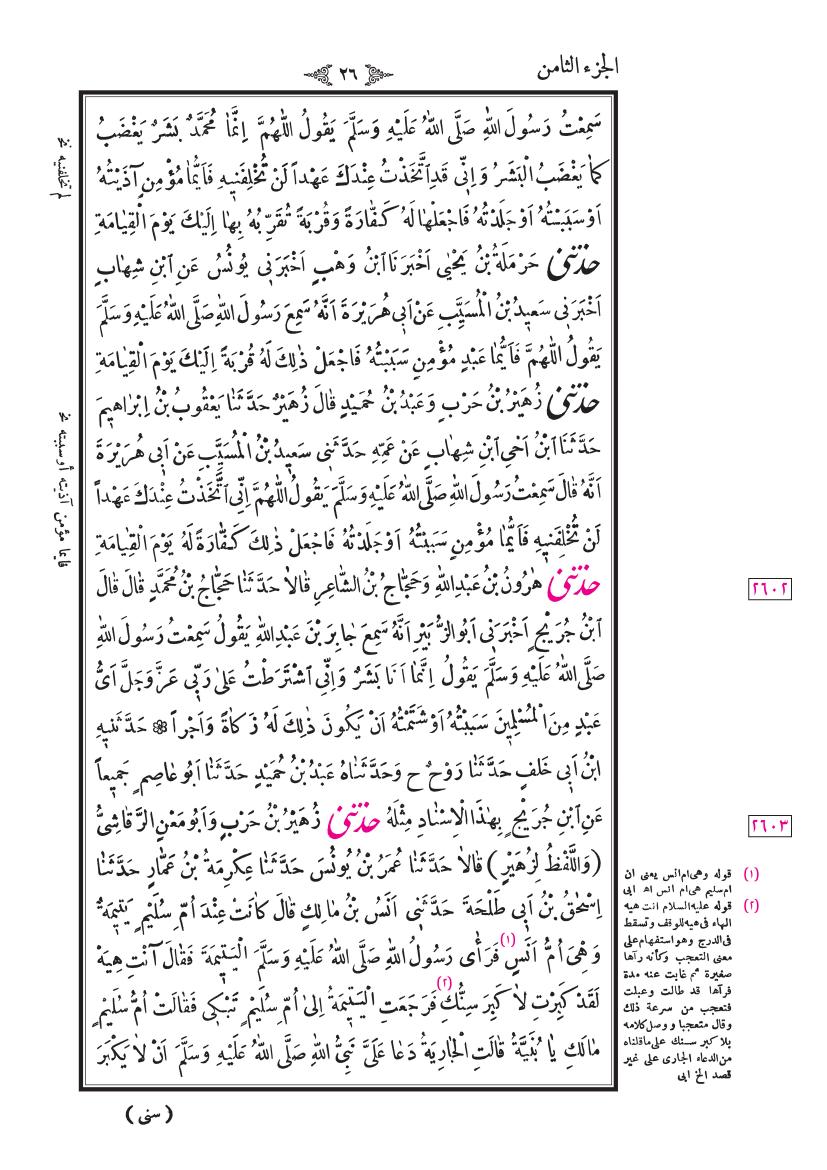 الجزء الثامن
٢٦
سَمِعْتُ رَسُولَ اللّٰهِ صَلَّى اللّٰهُ عَلَيْهِ وَسَلَّمَ يَقُولُ اللّٰهُمَّ اِنَّمَا مُحَمَّدٌ بَشَرٌ يَغْضَبُ
كَمَا يَغْضَبُ الْبَشَرُ وَاِنّى قَدِ اتَّخَذْتُ عِنْدَكَ عَهْداً لَنْ تُخْلِفَنيهِ فَاَيُّمَا مُؤْمِنٍ آذَيْتُهُ
اَوْ سَبَبْتُهُ اَوْ جَلَدْتُهُ فَاجْعَلْهَا لَهُ كَفَّارَةً وَقُرْبَةً تُقَرِّبُهُ بِهَا اِلَيْكَ يَوْمَ الْقِيَامَةِ
حَدَّثَنى حَرْمَلَةُ بْنُ يَحْيٰى اَخْبَرَنَا ابْنُ وَهْبٍ اَخْبَرَنى يُونُسُ عَنِ ابْنِ شِهَابٍ
اَخْبَرَنى سَعيدُ بْنُ الْمُسَيَّبِ عَنْ اَبى هُرَيْرَةَ اَنَّهُ سَمِعَ رَسُولَ اللّٰهِ صَلَّى اللّٰهُ عَلَيْهِ وَسَلَّمَ
يَقُولُ اللّٰهُمَّ فَاَيُّمَا عَبْدٍ مُؤْمِنٍ سَبَبْتُهُ فَاجْعَلْ ذٰلِكَ لَهُ قُرْبَةً اِلَيْكَ يَوْمَ الْقِيَامَةِ
حَدَّثَنى زُهَيْرُ بْنُ حَرْبٍ وَعَبْدُ بْنُ حُمَيْدٍ قَالَ زُهَيْرٌ حَدَّثَنَا يَعْقُوبُ بْنُ اِبْرَاهيمَ
حَدَّثَنَا ابْنُ اَخِى ابْنِ شِهَابٍ عَنْ عَمِّهِ حَدَّثَنى سَعيدُ بْنُ الْمُسَيَّبِ عَنْ اَبى هُرَيْرَةَ
اَنَّهُ قَالَ سَمِعْتُ رَسُولَ اللّٰهِ صَلَّى اللّٰهُ عَلَيْهِ وَسَلَّمَ يَقُولُ اللّٰهُمَّ اِنّى اتَّخَذْتُ عِنْدَكَ عَهْداً
لَنْ تُخْلِفَنيهِ فَاَيُّمَا مُؤْمِنٍ سَبَبْتُهُ اَوْ جَلَدْتُهُ فَاجْعَلْ ذٰلِكَ كَفَّارَةً لَهُ يَوْمَ الْقِيَامَةِ
حَدَّثَنى هٰرُونُ بْنُ عَبْدِ اللّٰهِ وَحَجَّاجُ بْنُ الشَّاعِرِ قَالَا حَدَّثَنَا حَجَّاجُ بْنُ مُحَمَّدٍ قَالَ قَالَ
ابْنُ جُرَيْجٍ اَخْبَرَنى اَبُو الزُّبَيْرِ اَنَّهُ سَمِعَ جَابِرَ بْنَ عَبْدِ اللّٰهِ يَقُولُ سَمِعْتُ رَسُولَ اللّٰهِ
صَلَّى اللّٰهُ عَلَيْهِ وَسَلَّمَ يَقُولُ اِنَّمَا اَنَا بَشَرٌ وَاِنّى اشْتَرَطْتُ عَلٰى رَبّى عَزَّ وَجَلَّ اَىُّ
عَبْدٍ مِنَ الْمُسْلِمينَ سَبَبْتُهُ اَوْ شَتَمْتُهُ اَنْ يَكُونَ ذٰلِكَ لَهُ زَكَاةً وَاَجْراً ❁ حَدَّثَنيهِ
ابْنُ اَبى خَلَفٍ حَدَّثَنَا رَوْحٌ ح وَحَدَّثَنَاهُ عَبْدُ بْنُ حُمَيْدٍ حَدَّثَنَا اَبُو عَاصِمٍ جَميعاً
عَنِ ابْنِ جُرَيْجٍ بِهٰذَا الْاِسْنَادِ مِثْلَهُ حَدَّثَنى زُهَيْرُ بْنُ حَرْبٍ وَاَبُو مَعْنٍ الرَّقَاشِىُّ
(وَاللَّفْظُ لِزُهَيْرٍ) قَالَا حَدَّثَنَا عُمَرُ بْنُ يُونُسَ حَدَّثَنَا عِكْرِمَةُ بْنُ عَمَّارٍ حَدَّثَنَا
اِسْحٰقُ بْنُ اَبى طَلْحَةَ حَدَّثَنى اَنَسُ بْنُ مَالِكٍ قَالَ كَانَتْ عِنْدَ اُمِّ سُلَيْمٍ يَتيمَةٌ
وَهِىَ اُمُّ اَنَسٍ (١) فَرَأٰى رَسُولُ اللّٰهِ صَلَّى اللّٰهُ عَلَيْهِ وَسَلَّمَ الْيَتيمَةَ فَقَالَ آنْتِ هِيَهْ
لَقَدْ كَبِرْتِ لَا كَبِرَ سِنُّكِ (٢) فَرَجَعَتِ الْيَتيمَةُ اِلٰى اُمِّ سُلَيْمٍ تَبْكى فَقَالَتْ اُمُّ سُلَيْمٍ
مَالَكِ يَا بُنَيَّةُ قَالَتِ الْجَارِيَةُ دَعَا عَلَىَّ نَبِىُّ اللّٰهِ صَلَّى اللّٰهُ عَلَيْهِ وَسَلَّمَ اَنْ لَا يَكْبَرَ
( سنى )
لم تخلفنيه نخ
فايما مؤمن آذيته أو سببته نخ
٢٦٠٢
٢٦٠٣
(١) قوله وهى ام انس يعنى ان
ام سليم هى ام انس اه ابى
(٢) قوله عليه السلام انت هيه
الهاء فى هيه للوقف وتسقط
فى الدرج وهو استفهام على
معنى التعجب وكأنه رآها
صغيرة ثم غابت عنه مدة
فرآها قد طالت وعبلت
فتعجب من سرعة ذلك
وقال متعجبا ووصل كلامه
بلا كبر سنك على ما قلناه
من الدعاء الجارى على غير
قصد الخ ابى